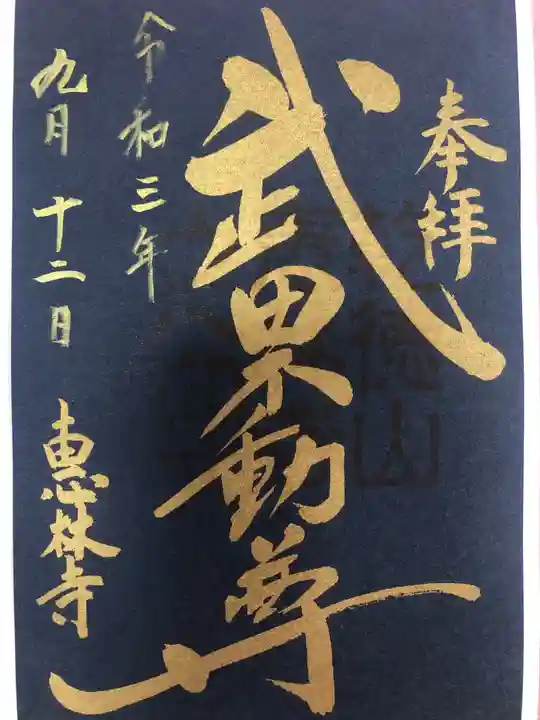 奉拝
武田不動尊
令和三年
九月十二日
恵林寺